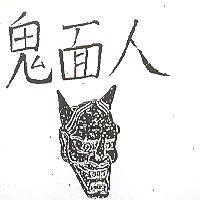 鬼面人